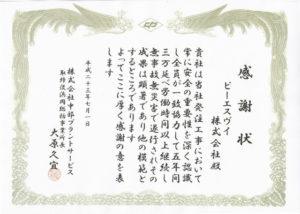 感謝状
ピーエスヴイ
株式会社殿
貴社は当社発注工事において
常に安全の重要性を深く認識
し全員が一致協力して五年間
三万延べ労働時間以上継続し
無事故無災害で遂行されその
成果は顕著であり他の模範と
するところであります
よってここに厚く感謝の意を表
します
平成二十三年七月一日
株式会社中部プラントサービス
取締役浜岡総括事業所長
大原久宣